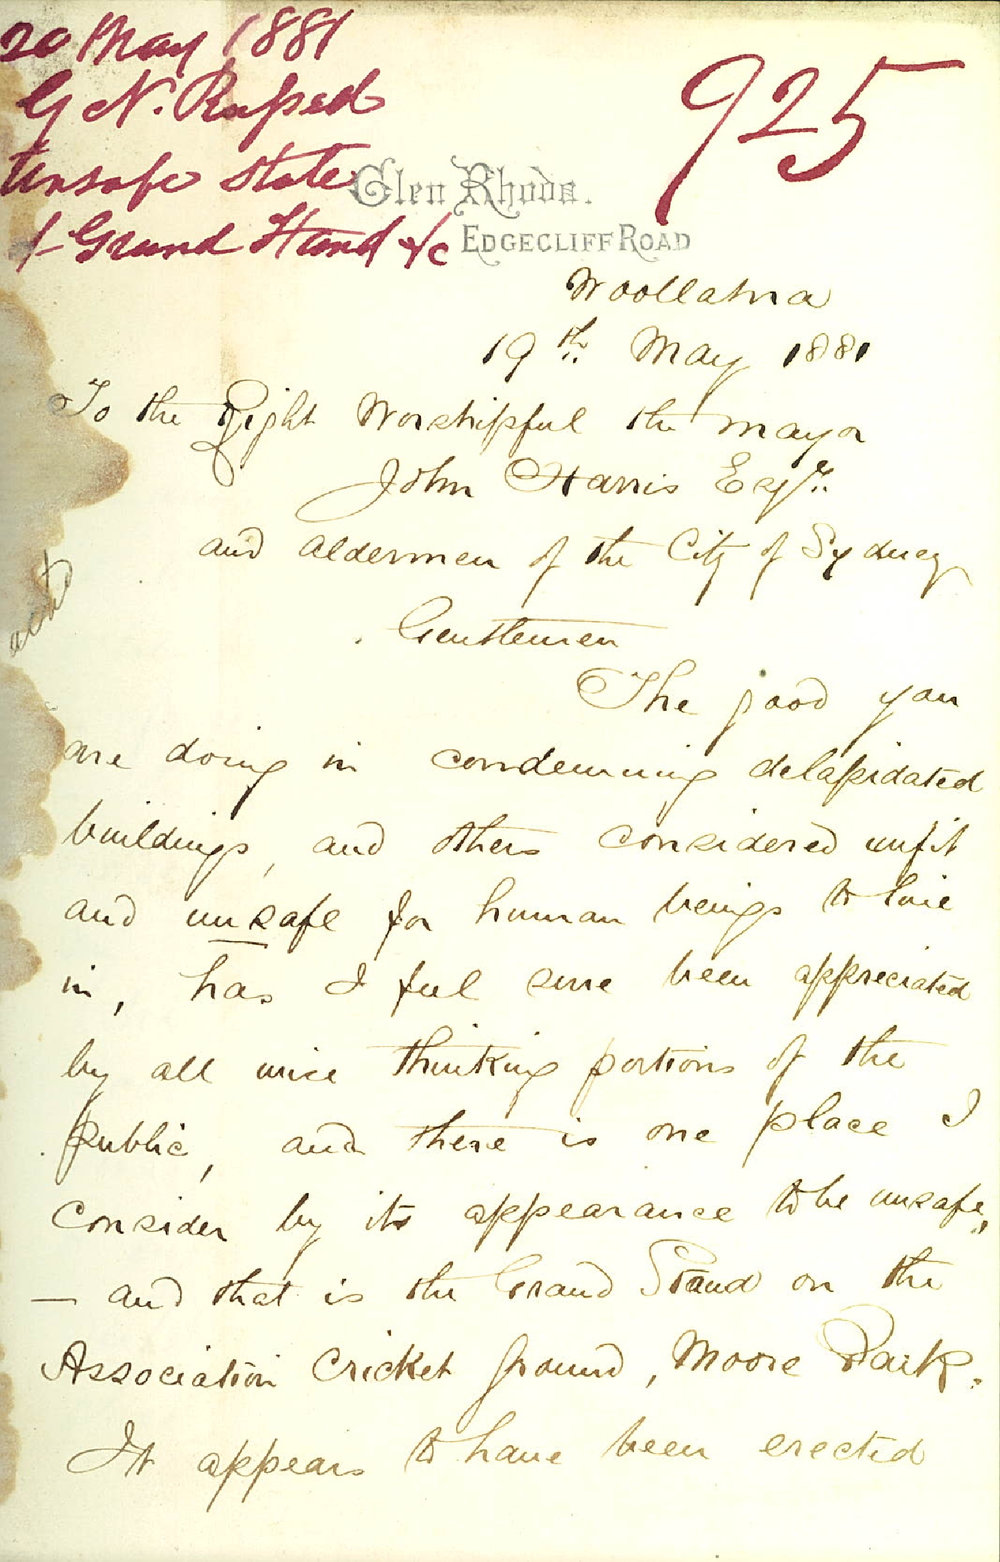 20 May 1881
G N. Russell
Unsafe state
of Grand Stand &c
925
Glen Rhoda.
EDGECLIFF ROAD
Woollahra
19th May 1881
To the Right Worshipful the Mayor
John Harris Esqre.
and Aldermen of the City of Sydney
Gentlemen
The good you
are doing in condemning delapidated
buildings, and others considered unfit
and unsafe for human beings to live
in, has I feel sure been appreciated
by all wise thinking portions of the
public, and there is one place I
consider by its appearance to be unsafe,
— and that is the Grand Stand on the
Association Cricket Ground, Moore Park.
It appears to have been erected